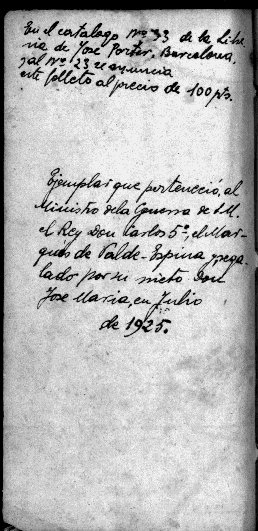 En el catalogo nº 33 de la Libre
ria de José Porter, Barcelona,
y al nº 23 se anuncia
este folleto al precio de 100 pts.
Ejemplar que perteneció, al
Ministro de la Guerra de S.M.
el Rey Don Carlos 5º, el Mar-
qués de Valde-Espina y rega-
lado por su nieto Don
José Maria, en Julio
de 1925.